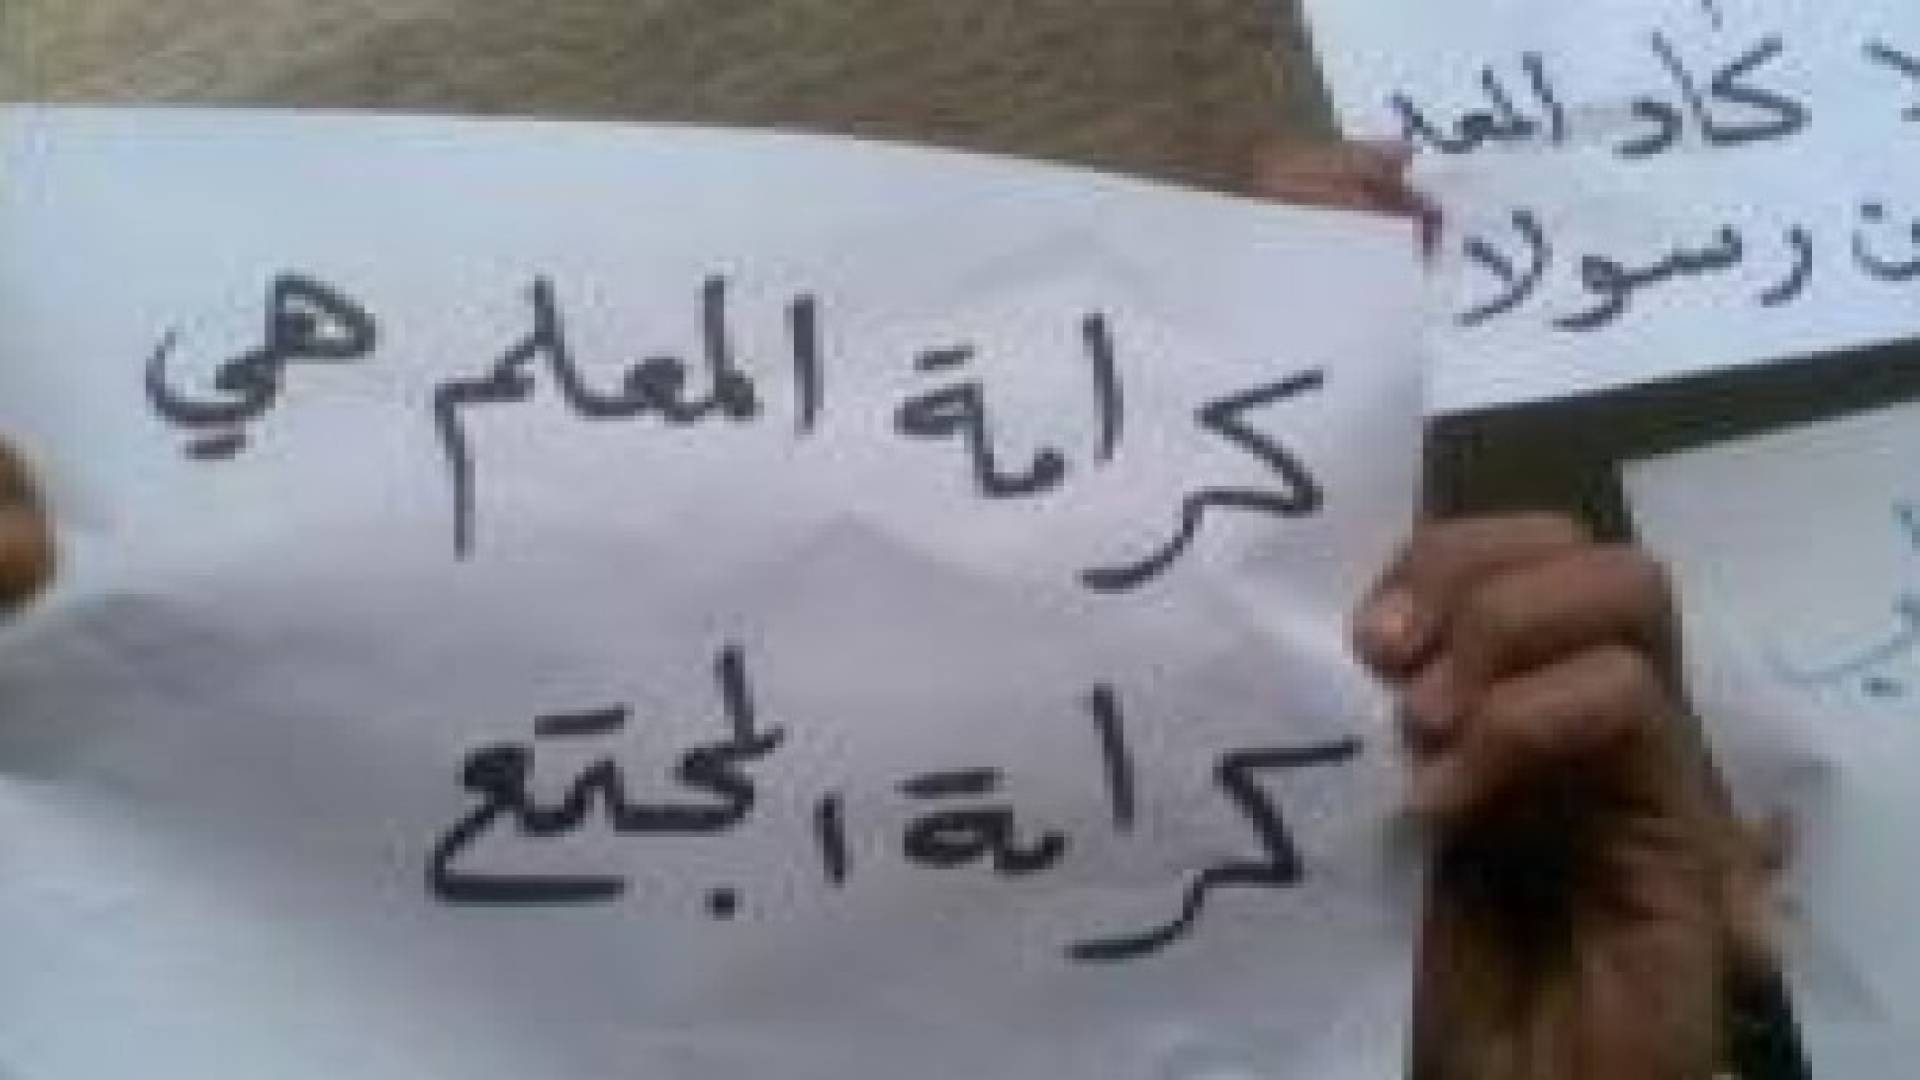 كرامة المعلم هي
كرامة المجتمع
كاد المعلـ
ن رسولا